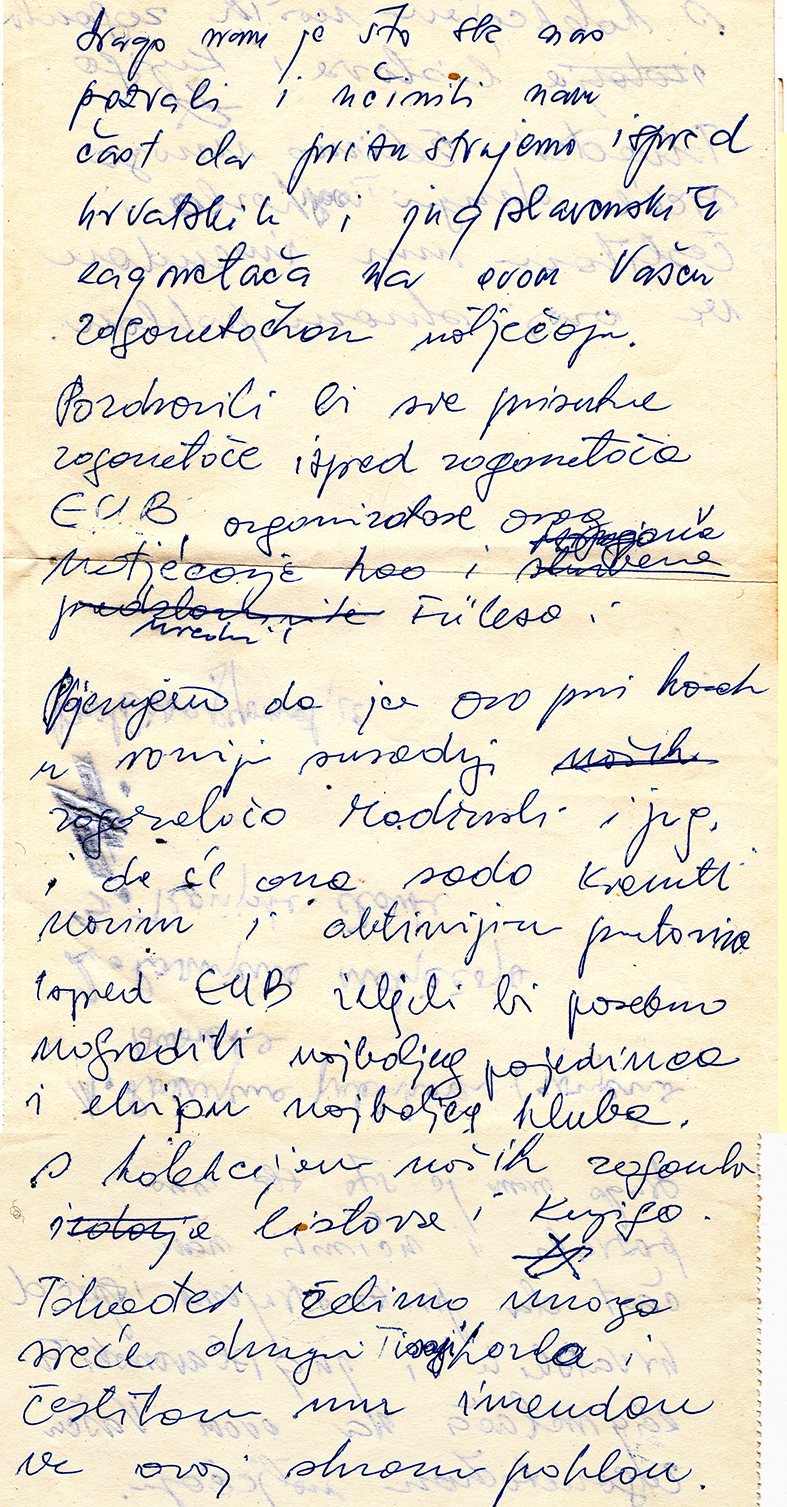 drago nam je što ste nas
pozvali i učinili nam
čast da prisustvujemo ispred
hrvatskih i jugoslavenskih
zagonetača na ovom Vašem
zagonetačkom natječaju.
Pozdravili bi sve prisutne
zagonetače ispred zagonetača
EUB, organizatore ovog
natjecanja kao i službene
predstavnike Fülesa i
urednici
Vjerujemo da je ovo prvi korak
u ranijoj suradnji naših
zagonetača Mađarski i jug.
i da će ona sada krenuti
novim i aktivnijim putovima
Ispred EUB željeli bi posebno
nagraditi najboljeg pojedinca
i ekipu najboljeg kluba.
s kolekcijom naših zagonetk
izdanja listova i knjiga.
Također želimo mnogo
sreće drugu i
čestitam mu imendan
uz ovaj skroman poklon.